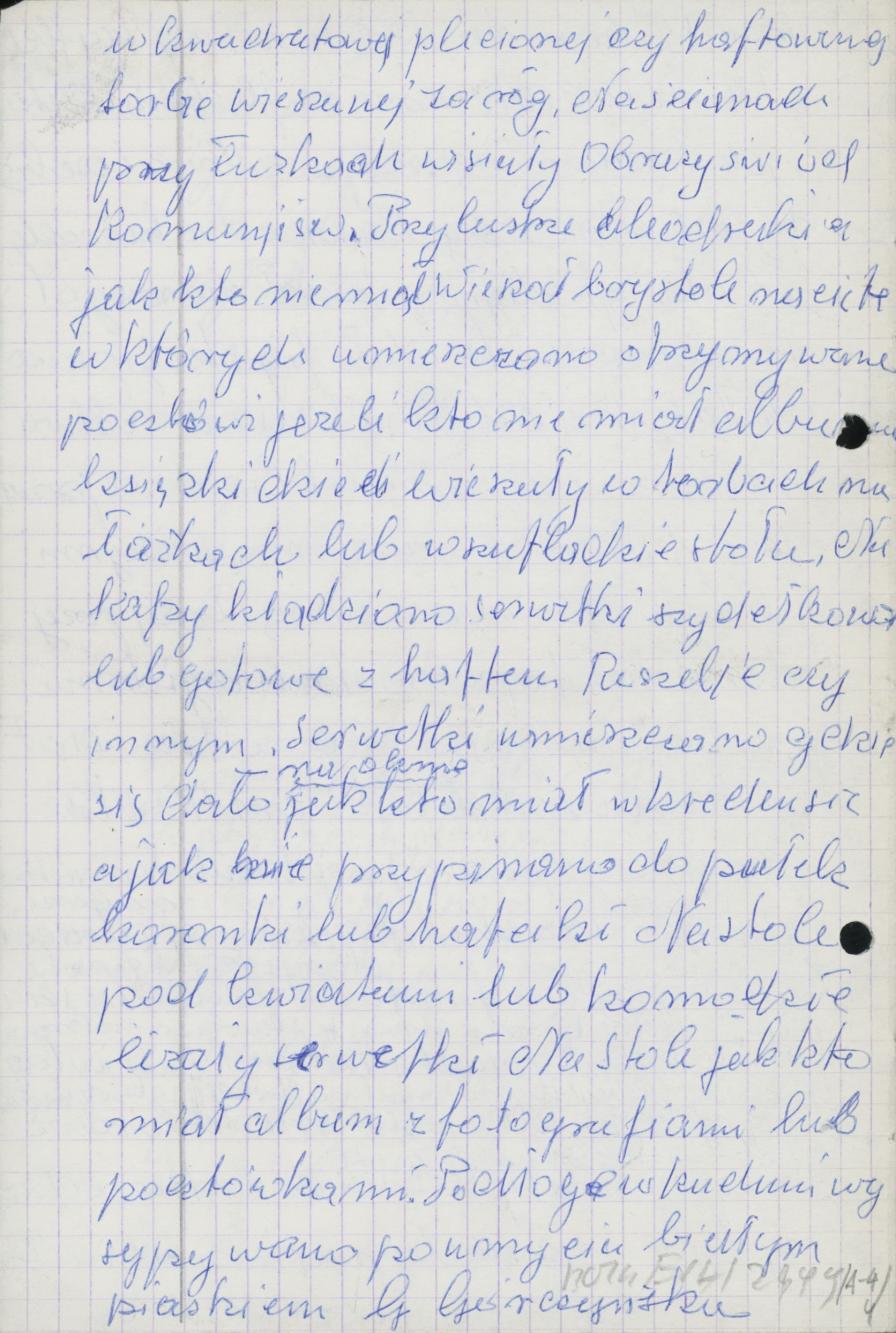 w kwadratowej plecionej czy haftowanej
torbie wieszanej za róg. Na ścianach
przy łuzkach wisiały Obrazy świ i od
Komunji św. Przy lustrze
jak kto niemiał wieszał na
w których umieszczano otrzymywane
pocztówi jeżeli kto nie miał albumu
książki wieszały w torbach na
łóżkach lub wszufladkie stołu, Na
kapy kładziono serwetki szydełkowe
lub gotowe z haftem Riszelje czy
innym. Serwetki umieszczano gdzie
na oknie
się dało jak kto miał wkredensie
a jak nie przypinano do pułek
koronki lub hafciki Na stole
pod kwiatami lub komodzie
leżały serwetki Na Stole jak kto
miał album z fotografiami lub
pocztówkami. Podłogę w kuchni wy
sypywano po umyciu białym
piaskiem